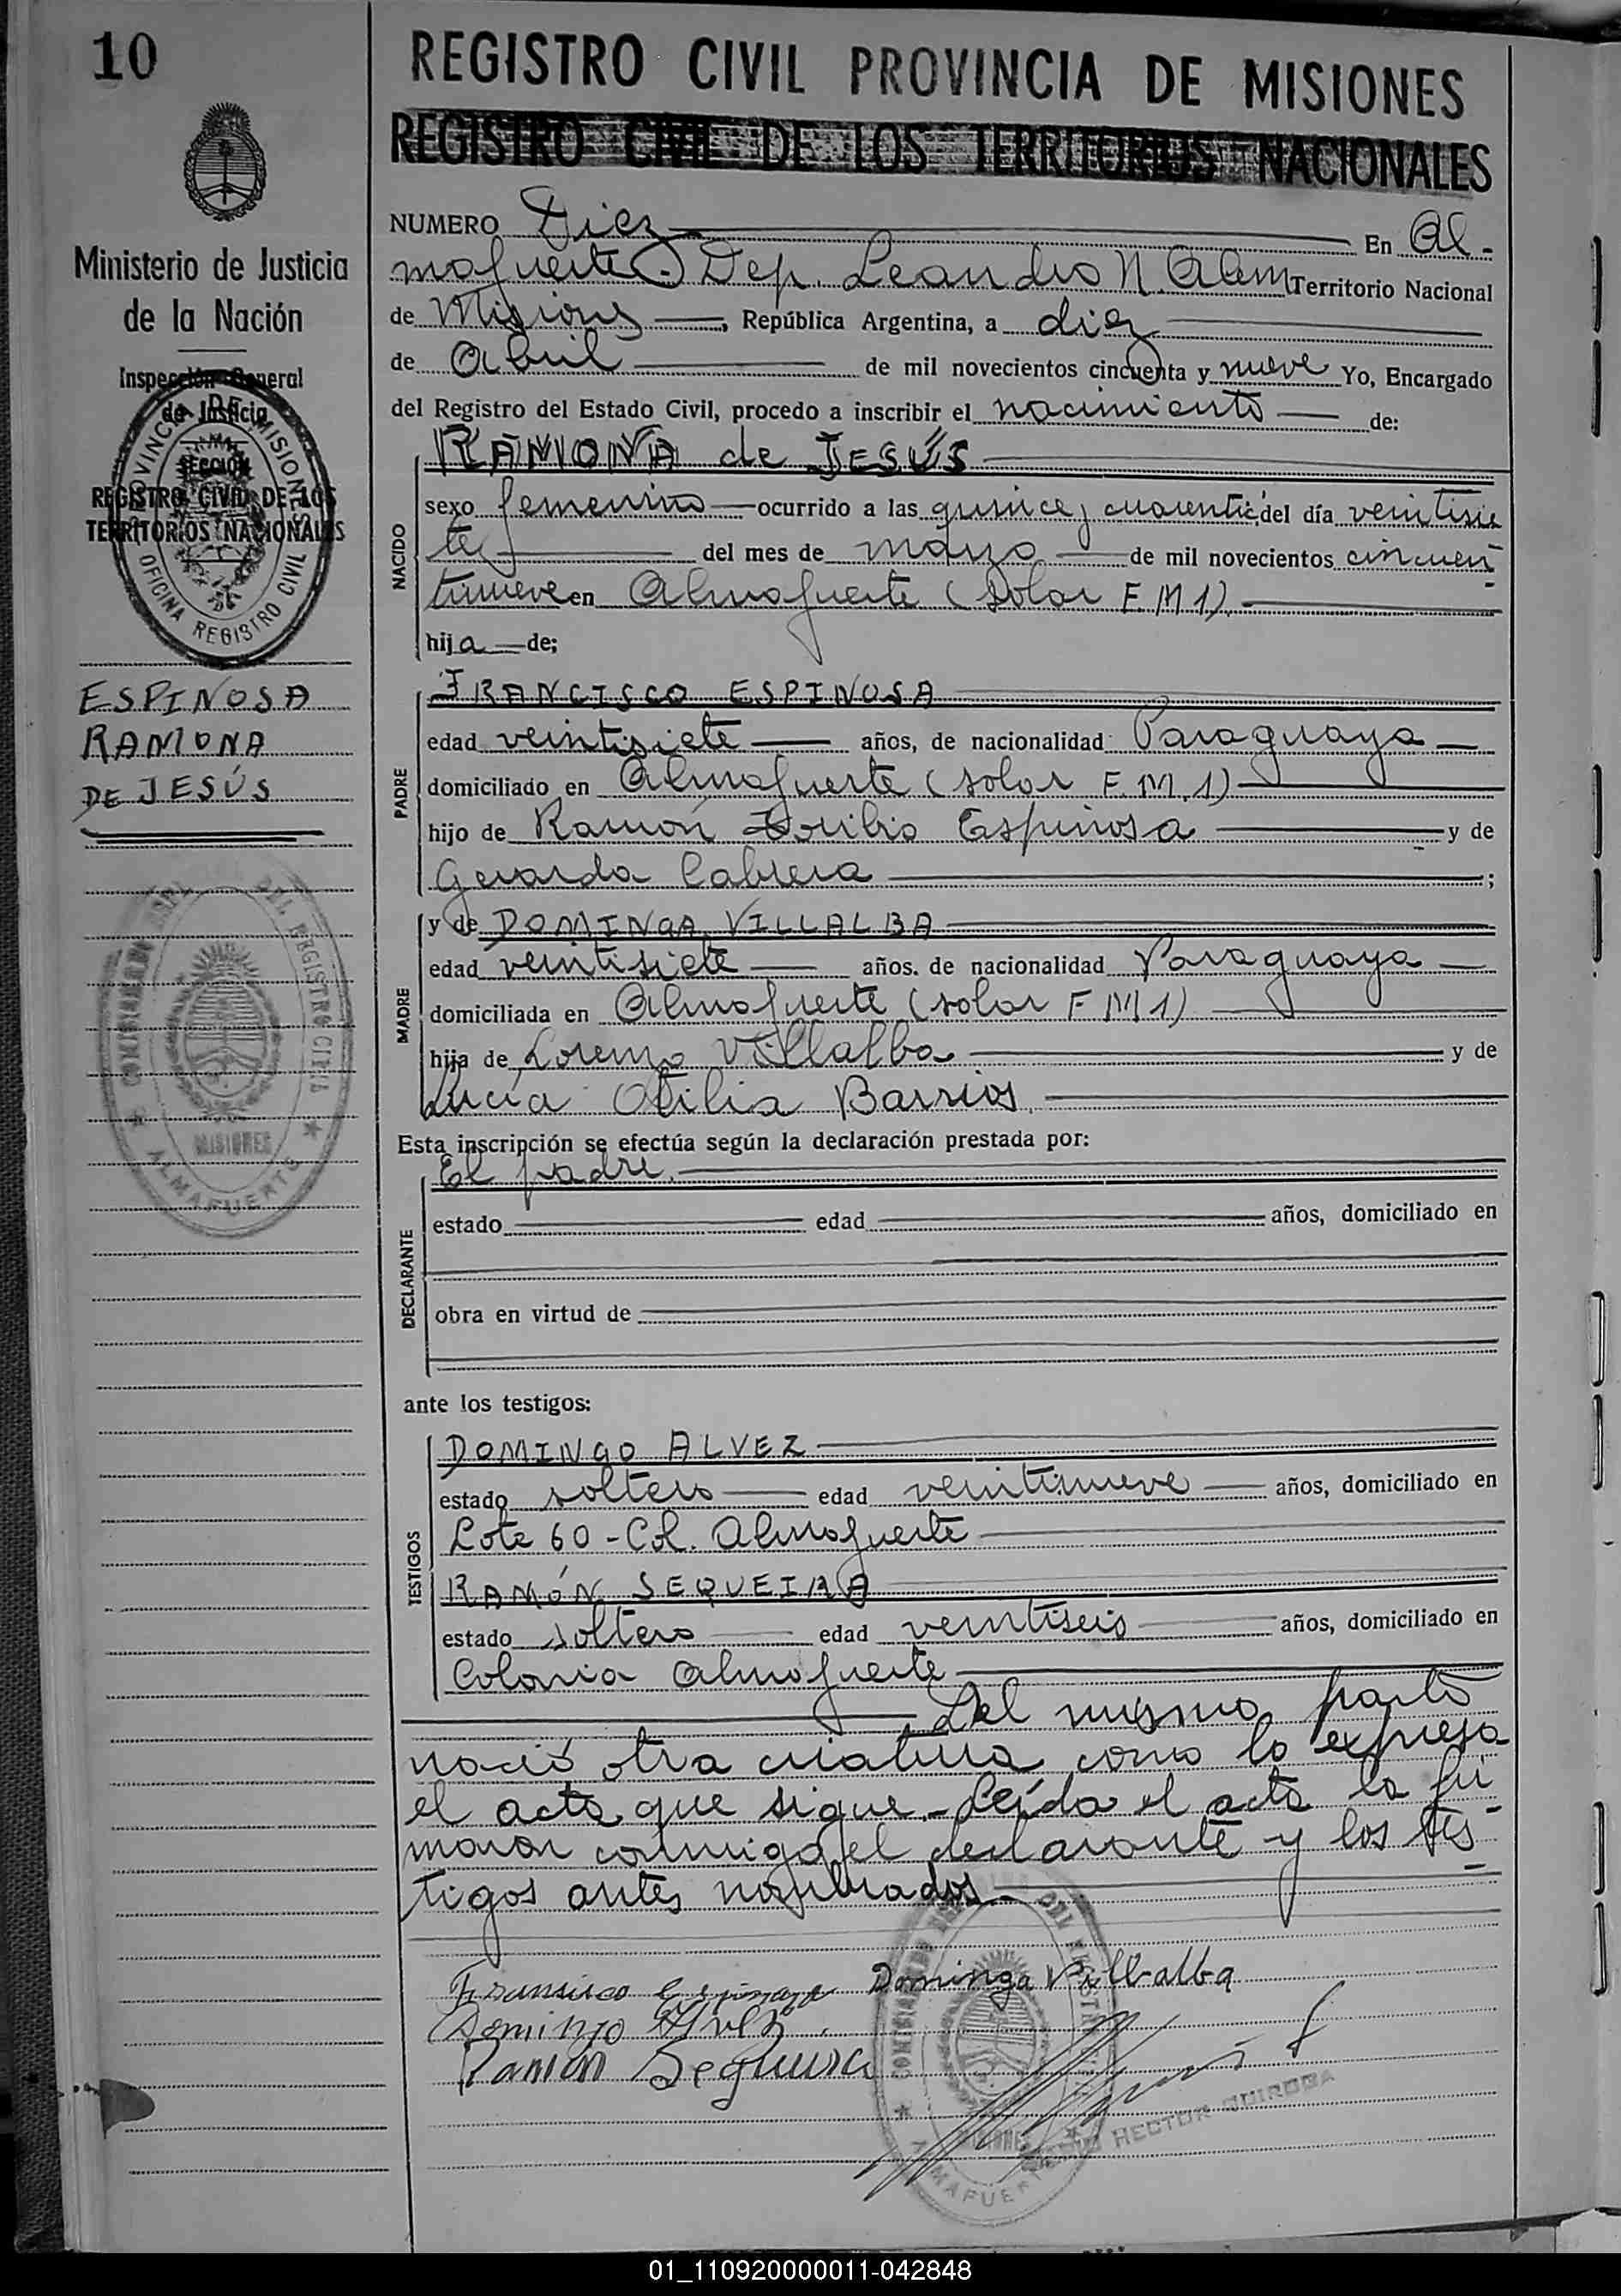 10
REGISTRO CIVIL PROVINCIA DE MISIONES
REGISTRO CIVIL DE LOS TERRITORIOS NACIONALES
Ministerio de Justicia
de la Nación
Inspección General
de Justicia
SECCION
REGISTRO CIVIL DE LOS
TERRITORIOS NACIONALES
PROVINCIA DE MISIONES
OFICINA REGISTRO CIVIL
ESPINOSA
RAMONA
DE JESÚS
DEL REGISTRO CIVIL
MISIONES
ALMAFUERTE
NUMERO Diez En Al-
mafuerte. Dep. Leandro N. Alem Territorio Nacional
de Misiones, República Argentina, a diez
de Abril de mil novecientos cincuenta y nueve Yo, Encargado
del Registro del Estado Civil, procedo a inscribir el nacimiento de:
RAMONA de JESÚS
NACIDO
sexo femenino ocurrido a las quince y del día veintisie
te del mes de marzo de mil novecientos cincuen
tinueve en Almafuerte (solar F. M 1).
hija de;
PADRE
FRANCISCO ESPINOSA
edad veintisiete años, de nacionalidad Paraguaya
domiciliado en Almafuerte (solar F. M. 1)
hijo de Ramón Toribio Espinosa y de
Gerarda Cabrera ;
MADRE
y de DOMINGA VILLALBA
edad veintisiete años. de nacionalidad Paraguaya
domiciliada en Almafuerte (solar F M 1)
hija de Lorenzo Villalba y de
Lucía Otilia Barrios.
Esta inscripción se efectúa según la declaración prestada por:
DECLARANTE
El padre.
estado edad años, domiciliado en
obra en virtud de
ante los testigos:
TESTIGOS
DOMINGO ALVEZ
estado soltero edad veintinueve años, domiciliado en
Lote 60 - Col. Almafuerte
RAMÓN SEQUEIRA
estado soltero edad veintiseis años, domiciliado en
Colonia Almafuerte
Del mismo parto
nació otra criatura como lo expresa
el acta que sigue.- Leída el acta la fir
maron conmigo el declarante y los tes-
tigos antes nombrados
Francisco Espinosa Dominga Villalba
Domingo Alvez.
Ramon Sequeira
HECTOR QUIROGA
ALMAFUERTE
01_110920000011-042848